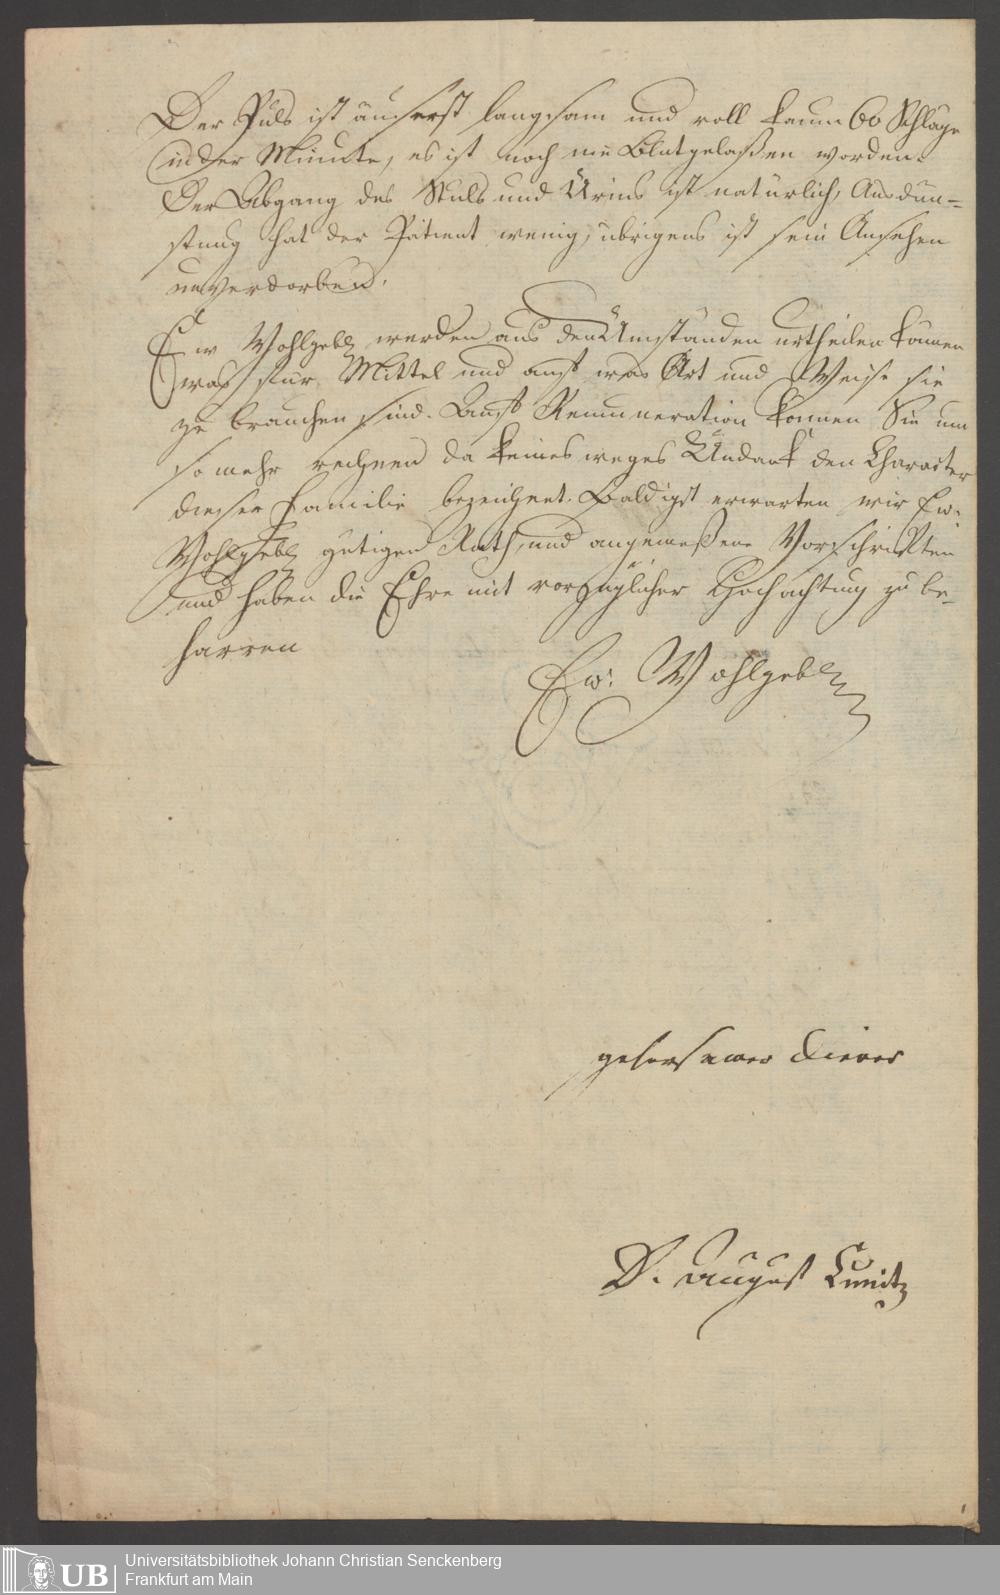 Der Puls ist äuserst langsam und voll kaum 60 Schläge
in der Minute, es ist noch nie Blutgelaßen worden.
Der Abgang des Stuls und Urins ist natürlich, Ausdün-
stung hat der Patient wenig, übrigens ist sein Ansehen
unverdorben.
Ew Wohlgebl werden aus den Umständen urtheilen können
was für Mittel und auf was Art und Weise sie
zu brauchen sind. Auf Remuneration können Sie um
so mehr rechnen da keinesweges Undank den Character
dieser Familie bezeichnet. Baldigst erwarten wir Ew.
Wohlgebl gütigen Rath, und angemeßene Vorschriften
und haben die Ehre mit vorzüglicher Hochachtung zu be-
harren
Ew. Wohlgebl
gehorsamer Diener
D. August Kunitz
1
Universitätsbibliothek Johann Christian Senckenberg
UB Frankfurt am Main